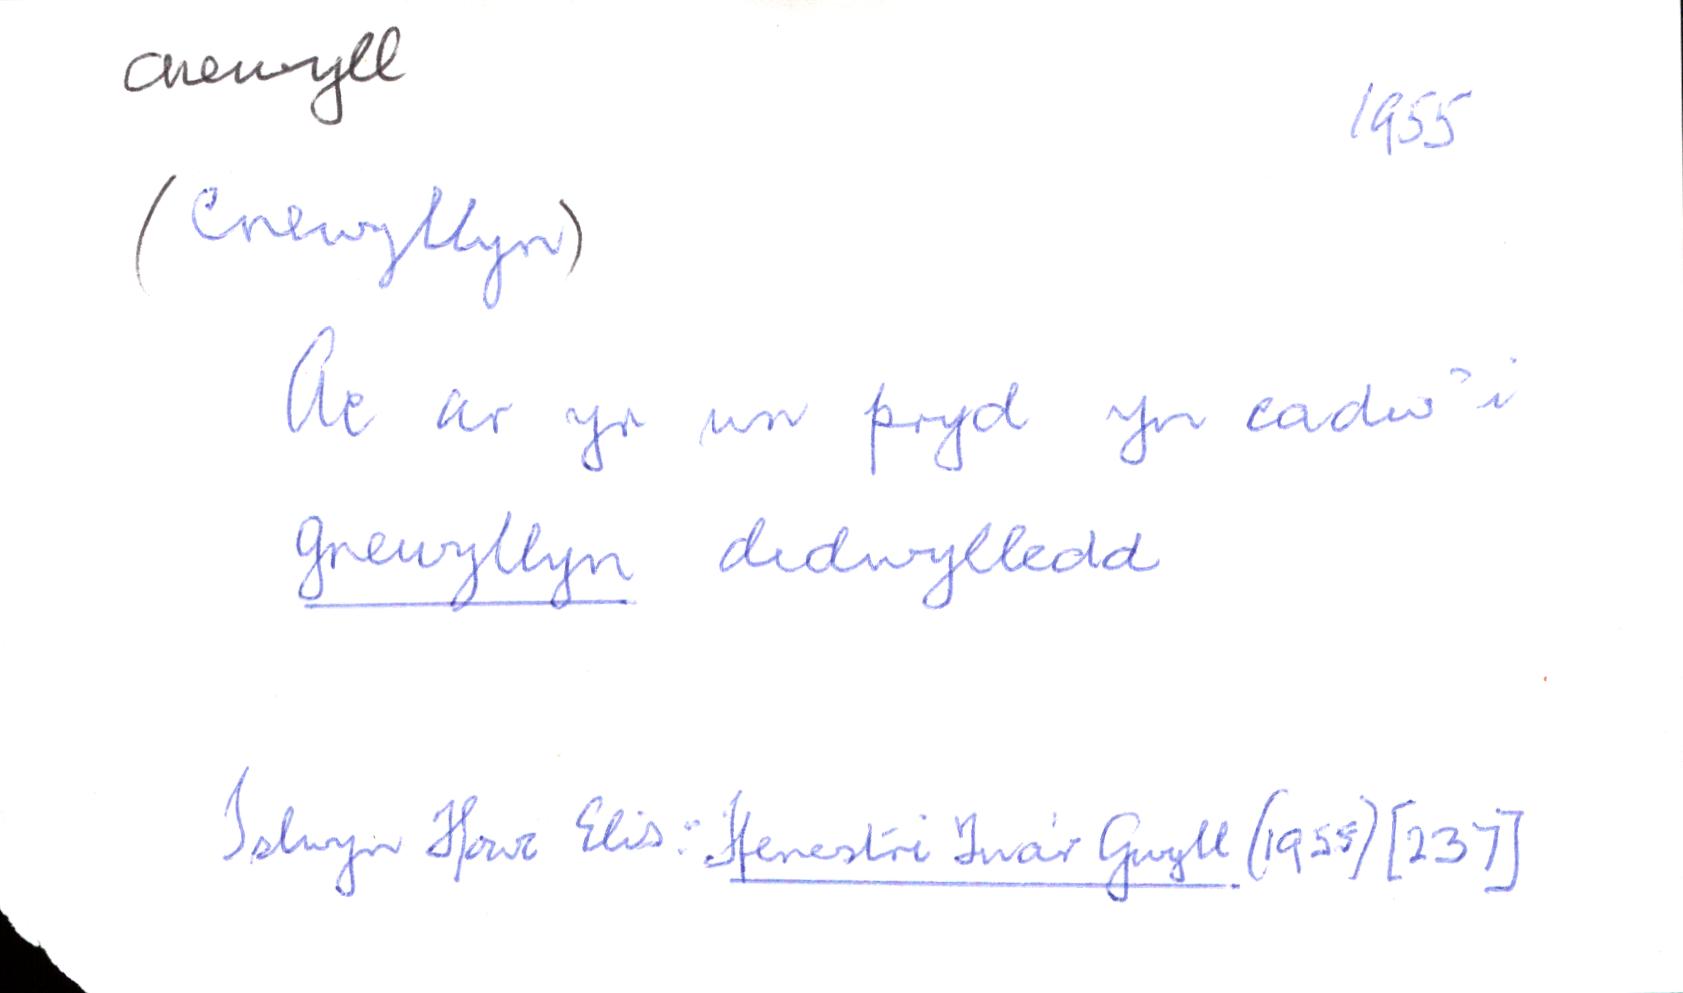 cnewyll
1955
(Cnewyllyn)
Ac ar yr un pryd yn cadw'i
gnewyllyn didwylledd
Islwyn Ffowc Elis: Ffenestri Tua'r Gwyll (1955) [237]